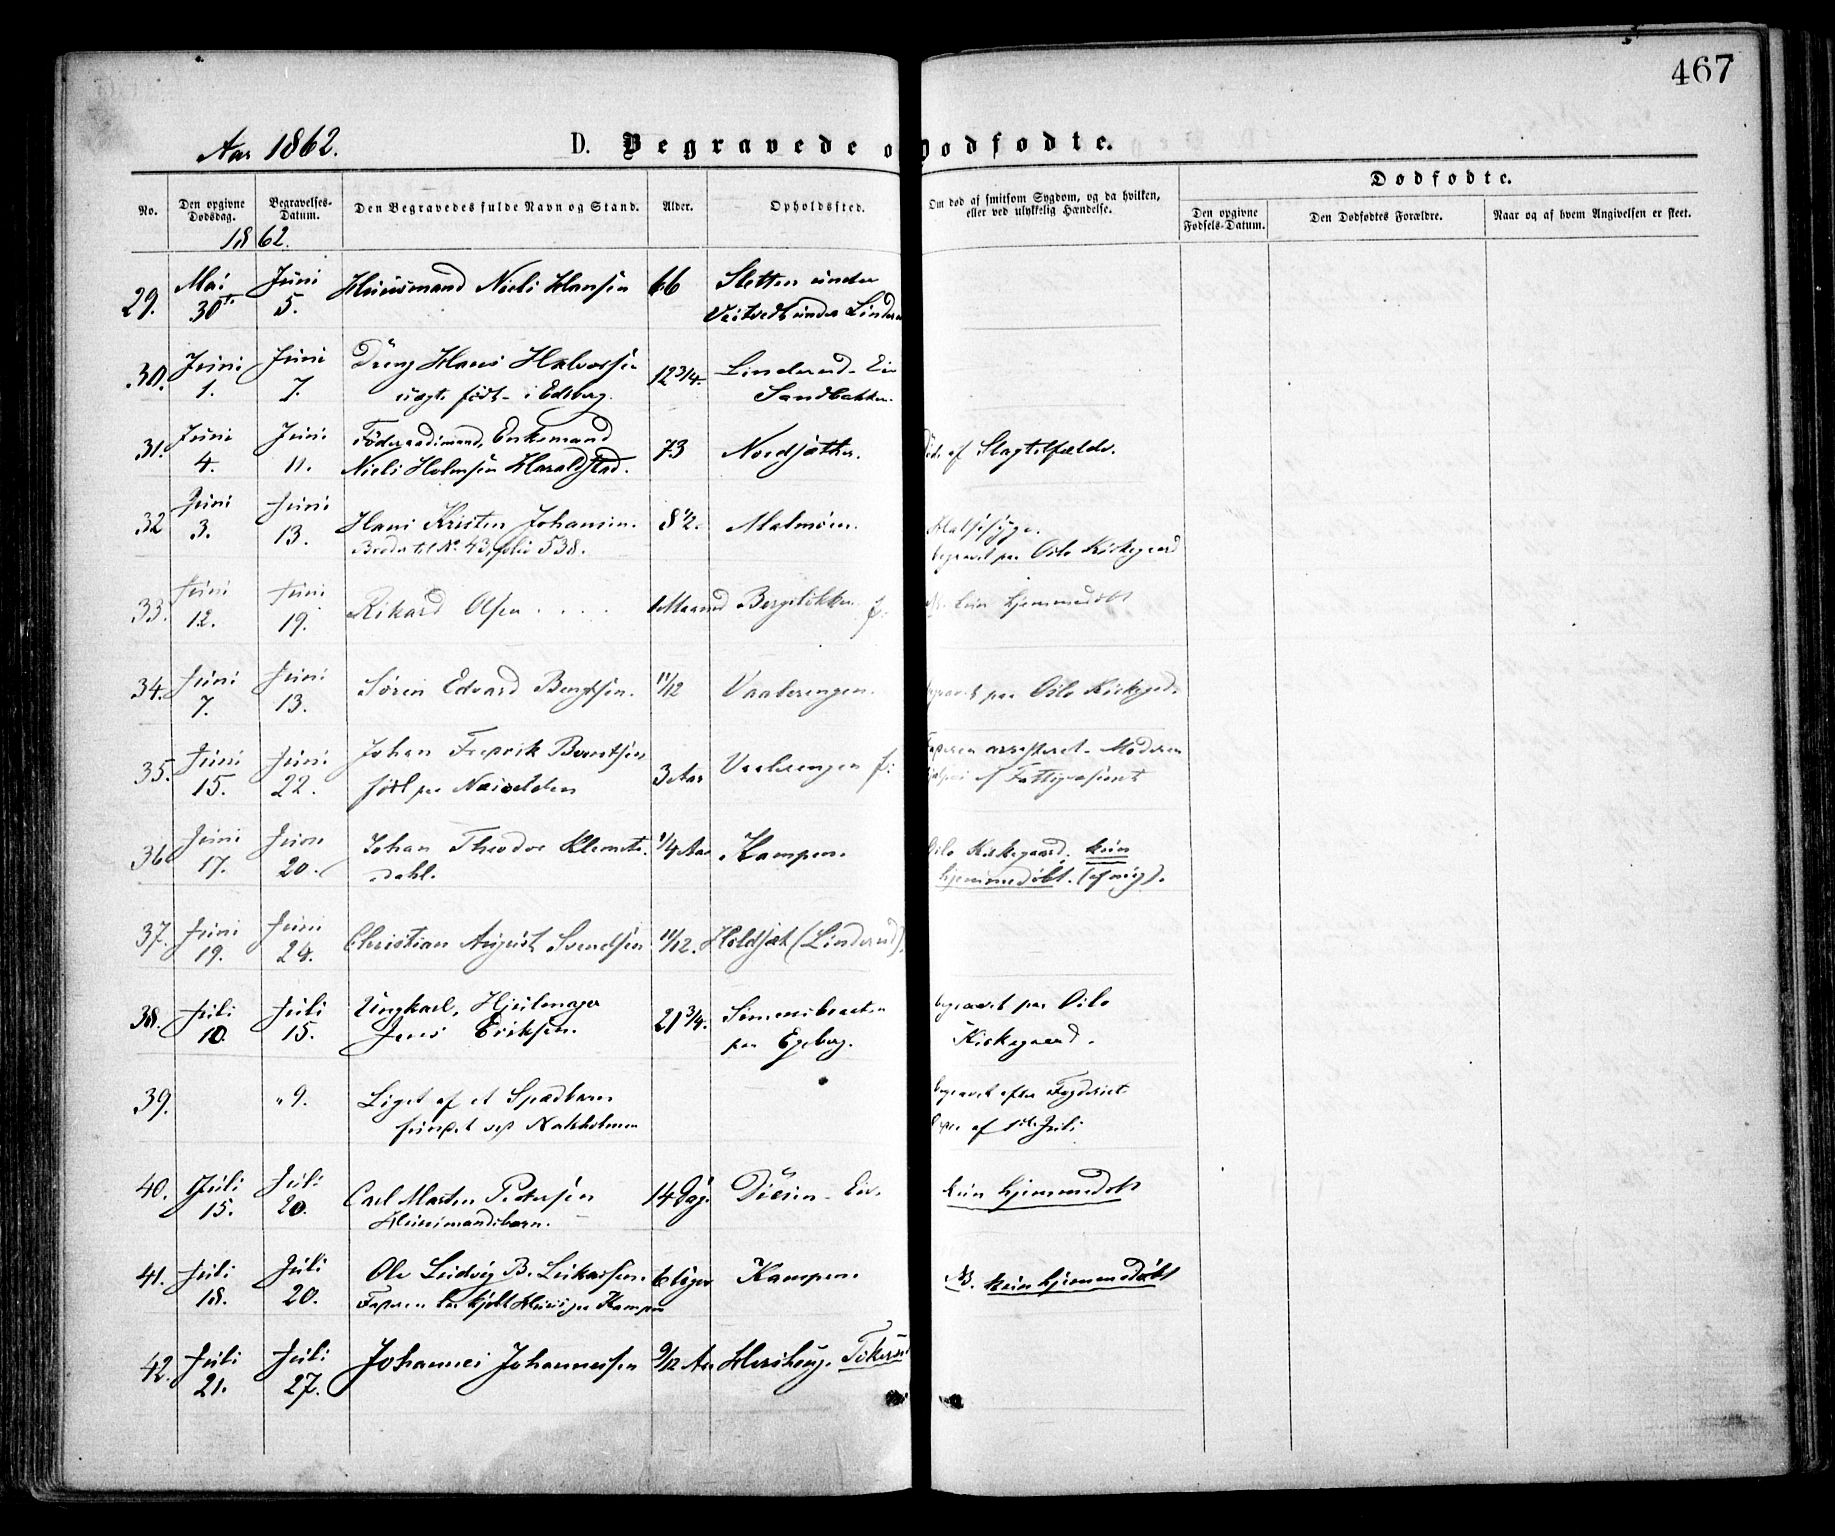 467
Aar 1862.
D. Begravede o
Dodfodte.
No.
Den opgivne Dodsdag.
Begravelses-Datum.
Den Begravedes fulde Navn og Stand.
Alder.
Opholdssted.
Om dod af smitsom Sygdom, og da hvilken, eller ved ulykkelig Hændelse.
Dodfodte.
Den opgivne Fodsels-Datum.
Den Dodfodtes Forældre.
Naar og af hvem Angivelsen er skeet.
1862.
29. Mai 30te Juni 5. Huusmand Niels Hansen 66 Sletten under
Veitvedt under Linderu
30. Juni 1. Juni 7. Dreng Hans Halvorsen 12 3/4. Linderud Eie
uægte født i Edsberg. Sandbakken.
31. Juni 4. Juni 11. Föderaadsmand, Enkemand 73 Nordsæther. af Slagtilfælde.
Niels Holmsen Haraldstad.
32 Juni 3. Juni 13. Hans Kristen Johansen. 8 1/2. Malmøen. Halssyge.
Broder til No. 43, folio 538. begravet paa Oslo Kirkegaard
33. Juni 12. Juni 19. Rikard Olsen 1 Maaned Bergslökken f. kun hjemmedøbt
34. Juni 7. Juni 13. Søren Edvard Bengtsen. 11/12 Vaalerengen. begravet paa Oslo Kirkegd.
35. Juni 15. Juni 22. Johan Fredrik Berntsen 3 Aar Vaalerengen f: Faderen arresteret. Moderen
født paa Næsodden af Fattigvæsenet
36. Juni 17. Juni 20. Johan Theodor Klemets- 1/4 Aar Kampen. Oslo Kirkegaard. kun
dahl. hjemmedøbt. (af mig).
37. Juni 19. Juni 24. Christian August Svendsen 11/12. Holdsæt (Linderud).
38. Juli 10. Juli 15. Ungkarl, Hjulmager 21 3/4. Simensbraaten begravet paa Oslo
Jens Eriksen. paa Egeberg. Kirkegaard.
39. " 9. Liget af et Spædbarn begravet efter Fogderiet
fundet ved Nakholmen af 1ste Juli
40. Juli 15. Juli 20. Carl Martin Pedersen 14 Dage. Disen Eie. kun hjemmedøbt
Huusmandsbarn.
41. Juli 18. Juli 20. Ole Ludvig B. Lukassen. 6 Uger Kampen. NB. kun hjemmedøbt
Faderen har kjøbt Huus paa Kampen
42. Juli 21. Juli 27. Johannes Johannesen 9/12 Aar